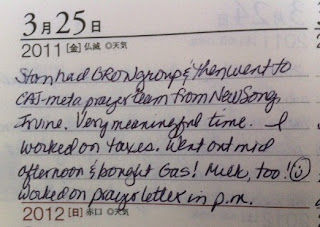 3月25日
2011 [金] 仏滅 ◎天気
Stan had GROW group & then went to
CAJ-meta prayer team from NewSong,
Irvine. Very meaningful time. I
worked on taxes. Went out mid
afternoon & bought Gas! Milk, too! ☺
Worked on prayer letter in p.m.
2012 [日] 赤口 ◎天気